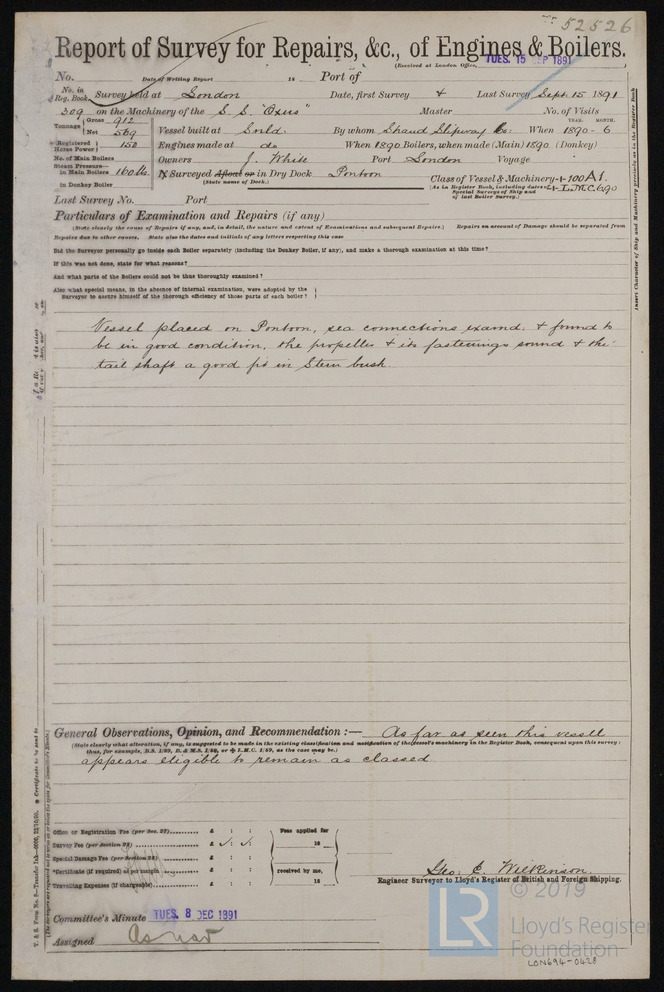 52526
Report of Survey for Repairs, &c., of Engines & Boilers.
(Received at London Office, TUES. 15 SEP 1891)
No. Date of Writing Report 18 Port of
No. in Reg. Book. Survey held at London Date, first Survey & Last Survey Sept. 15 1891
309 on the Machinery of the S.S. "Oxus" Master No. of Visits
Tonnage Gross 912 Net 569 Vessel built at Snld. By whom Strand Slipway Co: When YEAR. MONTH. 1890 - 6
Registered Horse Power 150 Engines made at do When 1890 Boilers, when made (Main) 1890 (Donkey)
No. of Main Boilers Owners J. White Port London Voyage
Steam Pressure in Main Boilers 160 lbs. If Surveyed Afloat or in Dry Dock Pontoon
(State name of Dock.)
Class of Vessel & Machinery 100 A1.
(As in Register Book, including dates of Special Surveys of Ship and of last Boiler Survey.) LMC 6,90
in Donkey Boiler
Last Survey No. Port
Particulars of Examination and Repairs (if any)
(State clearly the cause of Repairs if any, and, in detail, the nature and extent of Examinations and subsequent Repairs.) Repairs on account of Damage should be separated from
Repairs due to other causes. State also the dates and initials of any letters respecting this case
Did the Surveyor personally go inside each Boiler separately (including the Donkey Boiler, if any), and make a thorough examination at this time?
If this was not done, state for what reasons?
And what parts of the Boilers could not be thus thoroughly examined?
Also what special means, in the absence of internal examination, were adopted by the
Surveyor to assure himself of the thorough efficiency of those parts of each boiler?
Vessel placed on Pontoon, sea connections examd. & found to
be in good condition, the propeller & its fastenings sound & the
tail shaft a good fit in Stern bush.
General Observations, Opinion, and Recommendation :— As far as seen this vessel
(State clearly what alteration, if any, is suggested to be made in the existing classification and notification of the vessel's machinery in the Register Book, consequent upon this survey:
thus, for example, B.S. 1/89, B. & M.S. 1/88, or ✠ L.M.C. 1/89, as the case may be.)
appears eligible to remain as classed
Office or Registration Fee (per Sec. 28) £ : : Fees applied for
Survey Fee (per Section 28) £ : : 18
Special Damage Fee (per Section 28) £ : :
*Certificate (if required) as per margin £ : : received by me,
Travelling Expenses (if chargeable) £ : : 18
Geo. C. Wilkinson.
Engineer Surveyor to Lloyd's Register of British and Foreign Shipping.
Committee's Minute TUES. 8 DEC 1891
Assigned As now
Insert Character of Ship and Machinery precisely as in the Register Book
© 2019
LR
Lloyd's Register
Foundation
LON694-0428